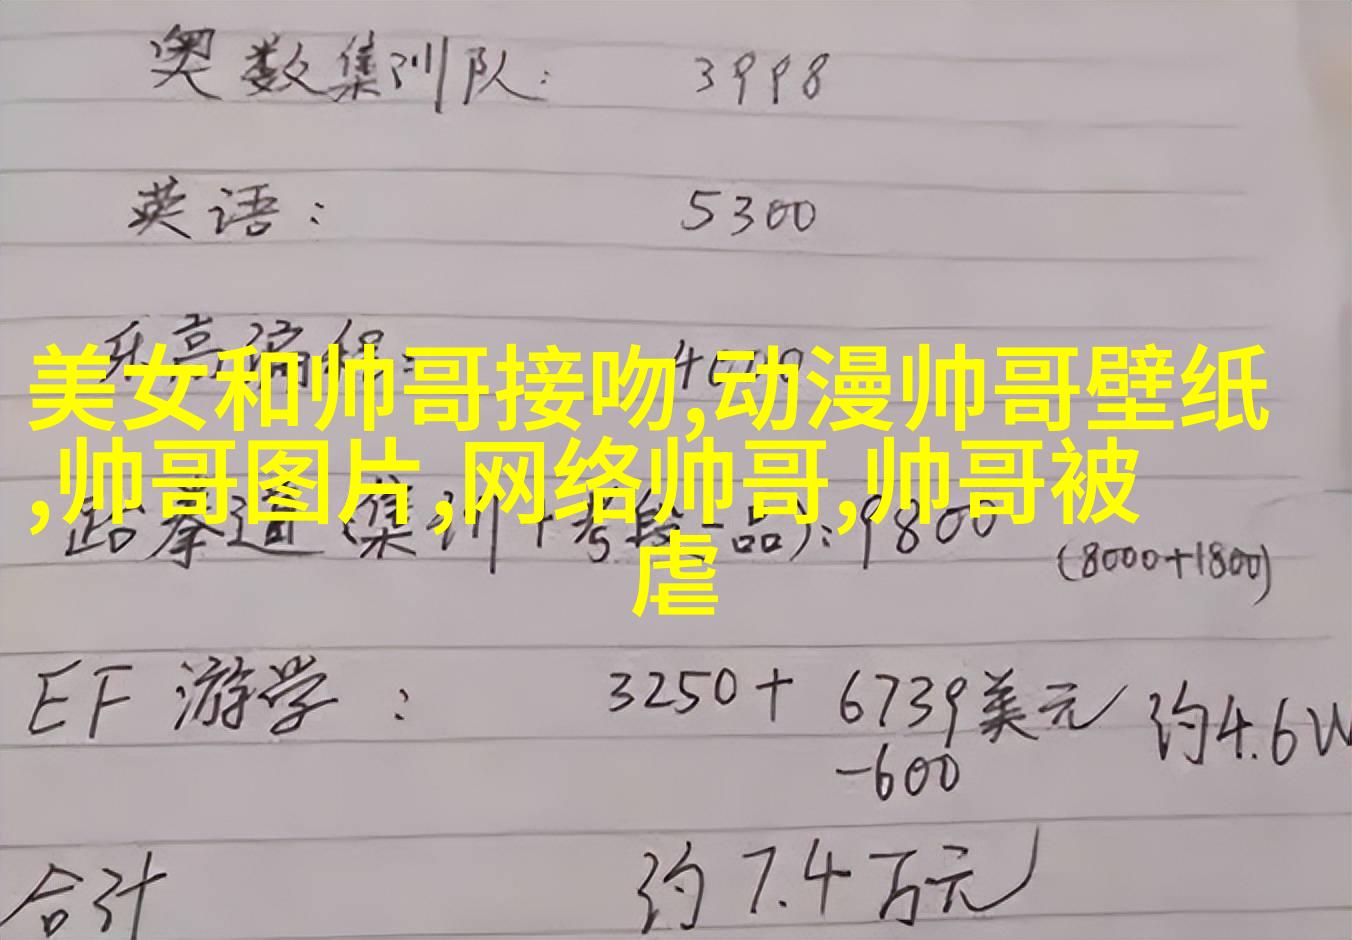 奥数集训队: 3998
英语: 5300
乐高编程:
美女和帅哥接吻,动漫帅哥壁纸
,帅哥图片,网络帅哥,帅哥被
虐
跆拳道(集训+考段一品): 9800 (8000+1800)
EF 游学: 3250+ 6739美元 约4.6W
-600
合计 约7.4万元